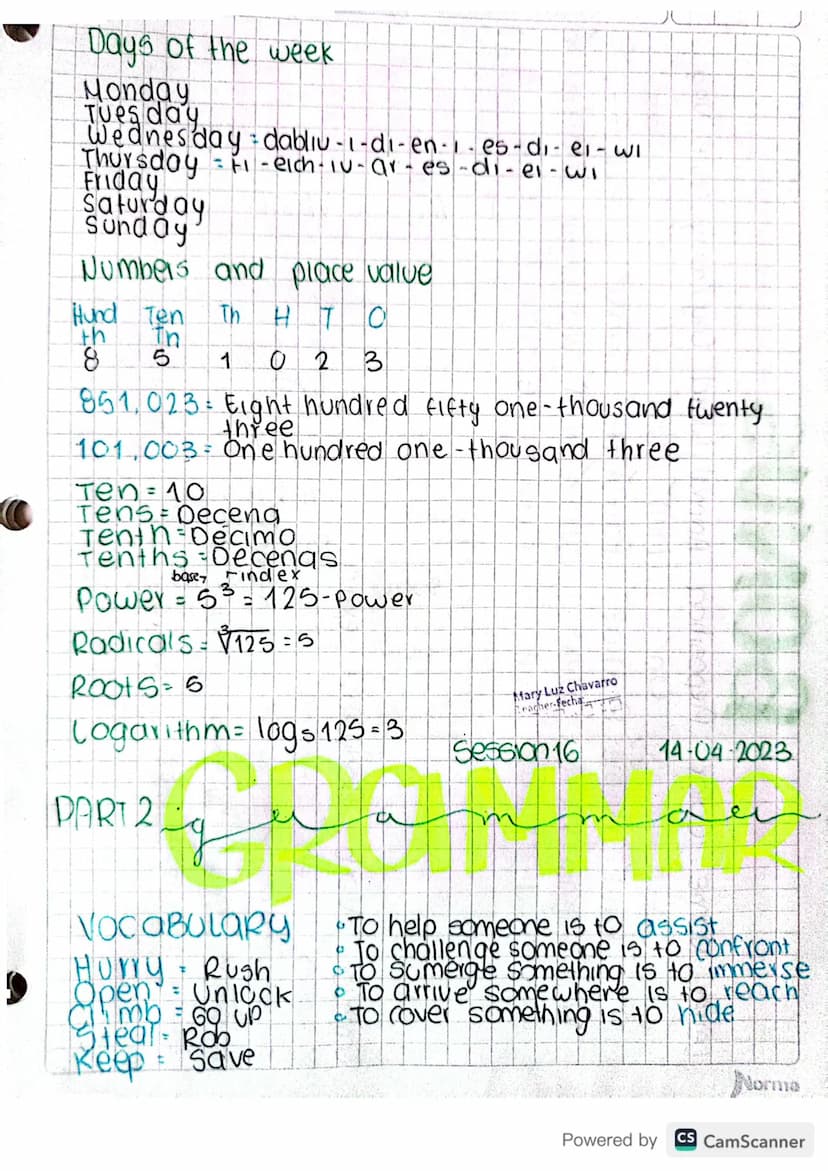 Days of the week
Monday
Tuesday
Wednesday = dabliu-i-di-en-i-es-di-ei-wi
Thursday = ti-eich-iu-ar-es-di-ei-wi
Friday
Saturday
Sunday
Numbers and place value
Hund Ten Th H T O
th Tn
8 5 1 0 2 3
851,023 = Eight hundred fifty one-thousand twenty
three
101,003 = One hundred one-thousand three
Ten = 10
Tens = Decena
Tenth = Décimo
Tenths = Decenas
base index
Power = 5³ = 125-power
Radicals = ∛125 = 5
Roots = 5
Logarithm = log5 125 = 3
Mary Luz Chavarro
Teacher-fecha
Session 16 14-04-2023
GRAMMAR
PART 2 grammar
VOCABULARY
Hurry = Rush
Open = Unlock
Climb = Go up
Steal = Rob
Keep = Save
To help someone is to assist
To challenge someone is to confront
To sumerge something is to immerse
To arrive somewhere is to reach
To cover something is to hide
Norma
Powered by CS CamScanner